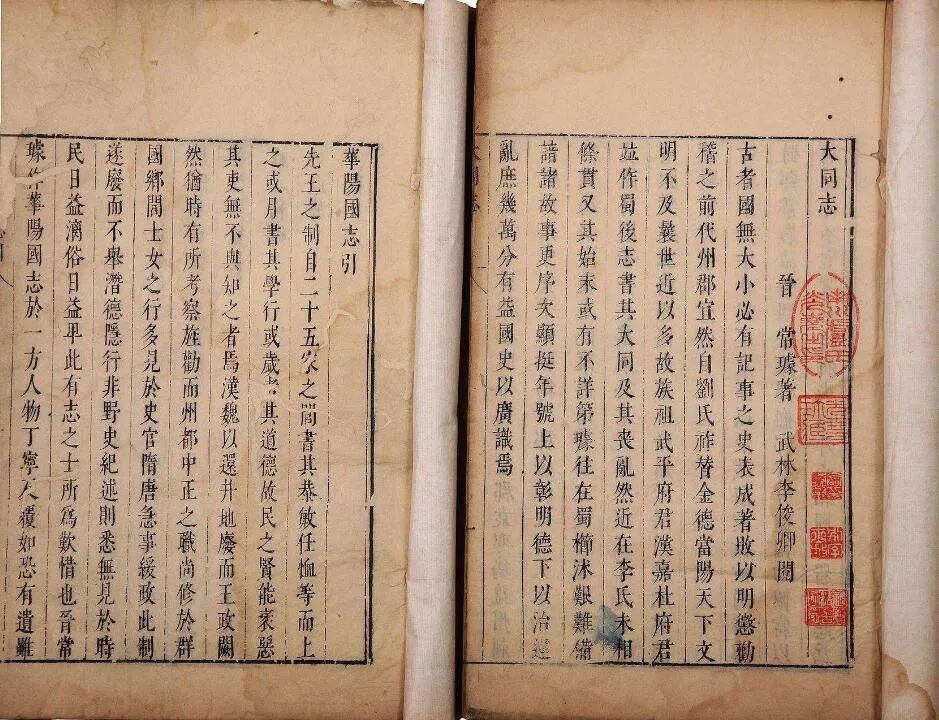 大同志
晉 常璩著 武林李俊卿閱
古者國無大小必有記事之史表成著敗以明懲勸
稽之前代州郡宜然自劉氏祚替金德當陽天下文
明不及曩世近以多故族祖武平府君漢嘉杜府君
竝作蜀後志書其大同及其喪亂然近在李氏未相
條貫又其始末或有不詳第璩往在蜀櫛沐艱難備
諳諸故事更序次顯挺年號上以彰明德下以治違
亂庶幾萬分有益國史以廣識焉
華陽國志引
先王之制自二十五家之閭書其恭敏任恤等而上
之或月書其學行或歲考其道德故民之賢能衺惡
其吏無不與知之者焉漢魏以還井地廢而王政闕
然猶時有所考察旌勸而州都中正之職尚修於群
國鄉閭士女之行多見於史官隋唐急事緩政此制
遂廢而不舉潛德隱行非野史紀述則悉無見於時
民日益漓俗日益卑此有志之士所為歎惜也晉常
璩作華陽國志於一方人物丁寧反覆如恐有遺雖